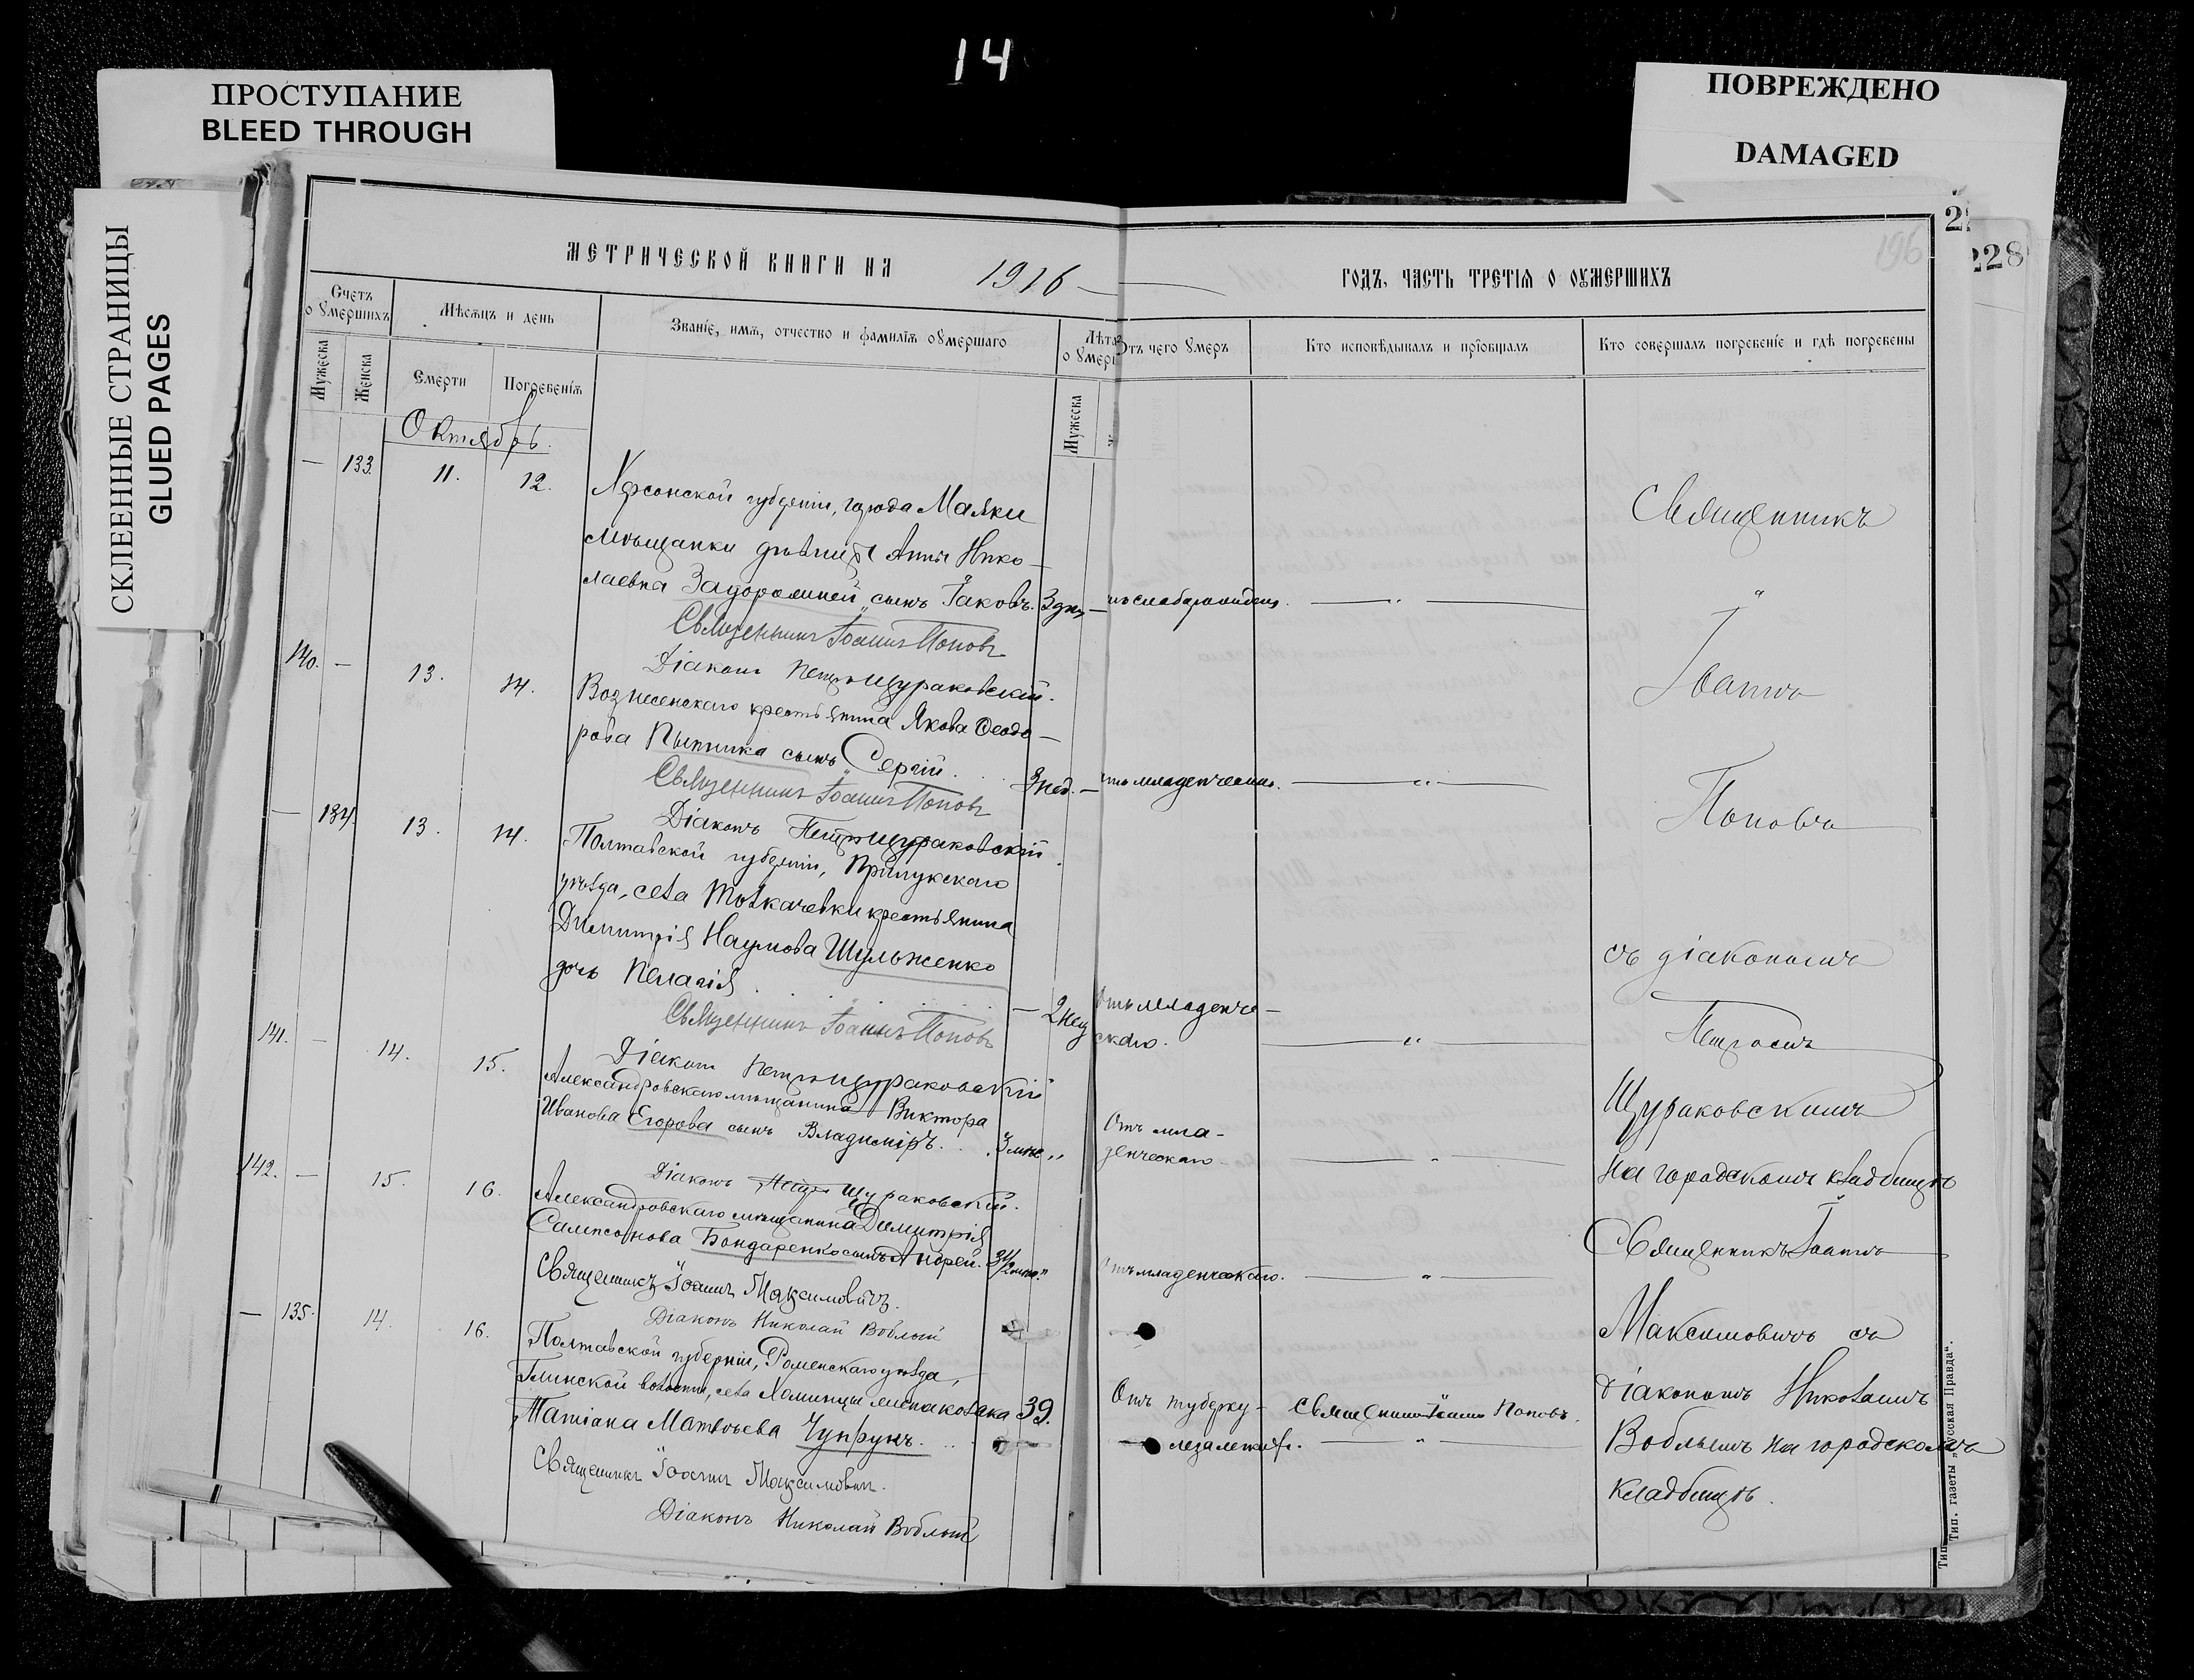 14
ПРОСТУПАНИЕ
BLEED THROUGH
ПОВРЕЖДЕНО
DAMAGED
СКЛЕЕННЫЕ СТРАНИЦЫ
GLUED PAGES
228
196
МЕТРИЧЕСКОЙ КНИГИ НА 1916
ГОДЪ, ЧАСТЬ ТРЕТІЯ О ОУМЕРШИХЪ
Счетъ оумершихъ
Мѣсяцъ и день
Званіе, имя, отчество и фамилія оумершаго
Лѣта оумер
Отъ чего умеръ
Кто исповѣдывалъ и пріобщалъ
Кто совершалъ погребеніе и гдѣ погребены
Мужеска
Женска
Смерти
Погребенія
Мужеска
Октябрь.
— 133. 11. 12.
Херсонской губерніи, города Маяки
мѣщанки дѣвицы Анны Нико-
лаевна Задорожней сынъ Іаковъ. 3 дня —
Священникъ Іоаннъ Поповъ
Діаконъ Петръ Щураковскій.
140. — 13. 14.
Вознесенскаго крестьянина Якова Ѳеодо-
рова Пыпника сынъ Сергій. 3 нед. — отъ младенческаго.
Священникъ Іоаннъ Поповъ
Діаконъ Петръ Щураковскій.
— 134. 13. 14.
Полтавской губерніи, Прилукскаго
уѣзда, села Толкачевки крестьянина
Димитрія Наумова Шульженко
дочь Пелагія — 2 нед. Отъ младенче-
скаго.
Священникъ Іоаннъ Поповъ
Діаконъ Петръ Щураковскій
141. — 14. 15.
Александровскаго мѣщанина Виктора
Иванова Егорова сынъ Владиміръ. 3 мѣс. Отъ мла-
денческаго.
Діаконъ Петръ Щураковскій.
142. — 15. 16.
Александровскаго мѣщанина Димитрія
Сампсонова Бондаренко сынъ Андрей. Отъ младенческаго.
Священникъ Іоаннъ Максимовичъ.
Діаконъ Николай Воблый
— 135. 14. 16.
Полтавской губерніи, Роменскаго уѣзда,
Глинской волости, села жена козака 39. Отъ туберку- Священникъ Іоаннъ Поповъ.
Татіана Матвѣева Чупрунъ.
Священникъ Іоаннъ Максимович.
Діаконъ Николай Воблый
Священникъ
Іоаннъ
Поповъ
съ діакономъ
Петромъ
Щураковскимъ
на городскомъ кладбищѣ
Священникъ Іоаннъ
Максимовичъ съ
діакономъ Николаемъ
Воблымъ на городскомъ
кладбищѣ.
Тип. газеты „Русская Правда“.